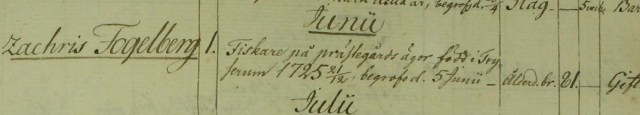 begrofs d. 4 Slag. 5 
Junii
Zachris Fogelberg 1. Fiskare på prästegårds ägor född i Try-
serum 1725 21/12, begrofs d. 5 Junii – Ålderd.br. 81. – Gift
Julii